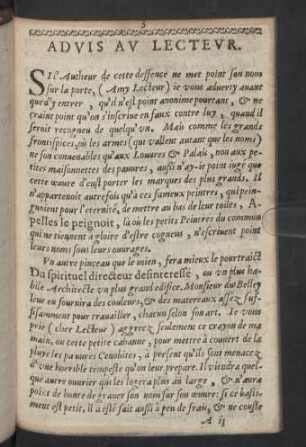 3
ADVIS AV LECTEVR.
SI l'Autheur de cette deffence ne met point son nom
sur la porte, (Amy Lecteur) ie vous aduerty auant
que d'y entrer, qu'il n'est point anonime pourtant, & ne
craint point qu'on s'inscriue en faux contre luy, quand il
seroit recogneu de quelqu'vn. Mais comme les grands
frontispices, où les armes (qui vallent autant que les noms)
ne son conuenables qu'aux Louures & Palais, non aux pe-
tites maisonnettes des pauures, aussi n'ay-ie point iugé que
cette œuure d'eust porter les marques des plus grands. Il
n'appartenoit autresfois qu'à ces fameux peintres, qui pein-
gnoient pour l'eternité, de mettre au bas de leur toiles, A-
pelles le peignoit, là où les petits Peintres du commun
qui ne tiennent à gloire d'estre cogneus, n'escriuent point
leurs noms sous leurs ouurages.
Vn autre pinceau que le mien, fera mieux le pourtraict
Du spirituel directeur desinteressé, ou vn plus ha-
bile Architecte vn plus grand edifice. Monsieur du Belley
leur en fournira des couleurs, & des matereaux assez suf-
fisamment pour trauailler, chacun selon son art. Ie vous
prie (cher Lecteur) aggreez seulement ce crayon de ma
main, ou cette petite cabanne, pour mettre à couuert de la
pluye les pauures Cenobites, à present qu'ils sont menacez
d'vne horrible tempeste qu'on leur prepare. Il viendra quel-
que autre ouurier qui les logera plus au large, & n'aura
point de honte de grauer son nom sur son œuure: si ce basti-
ment est petit, il a esté fait aussi à peu de frais, & ne couste
A ij